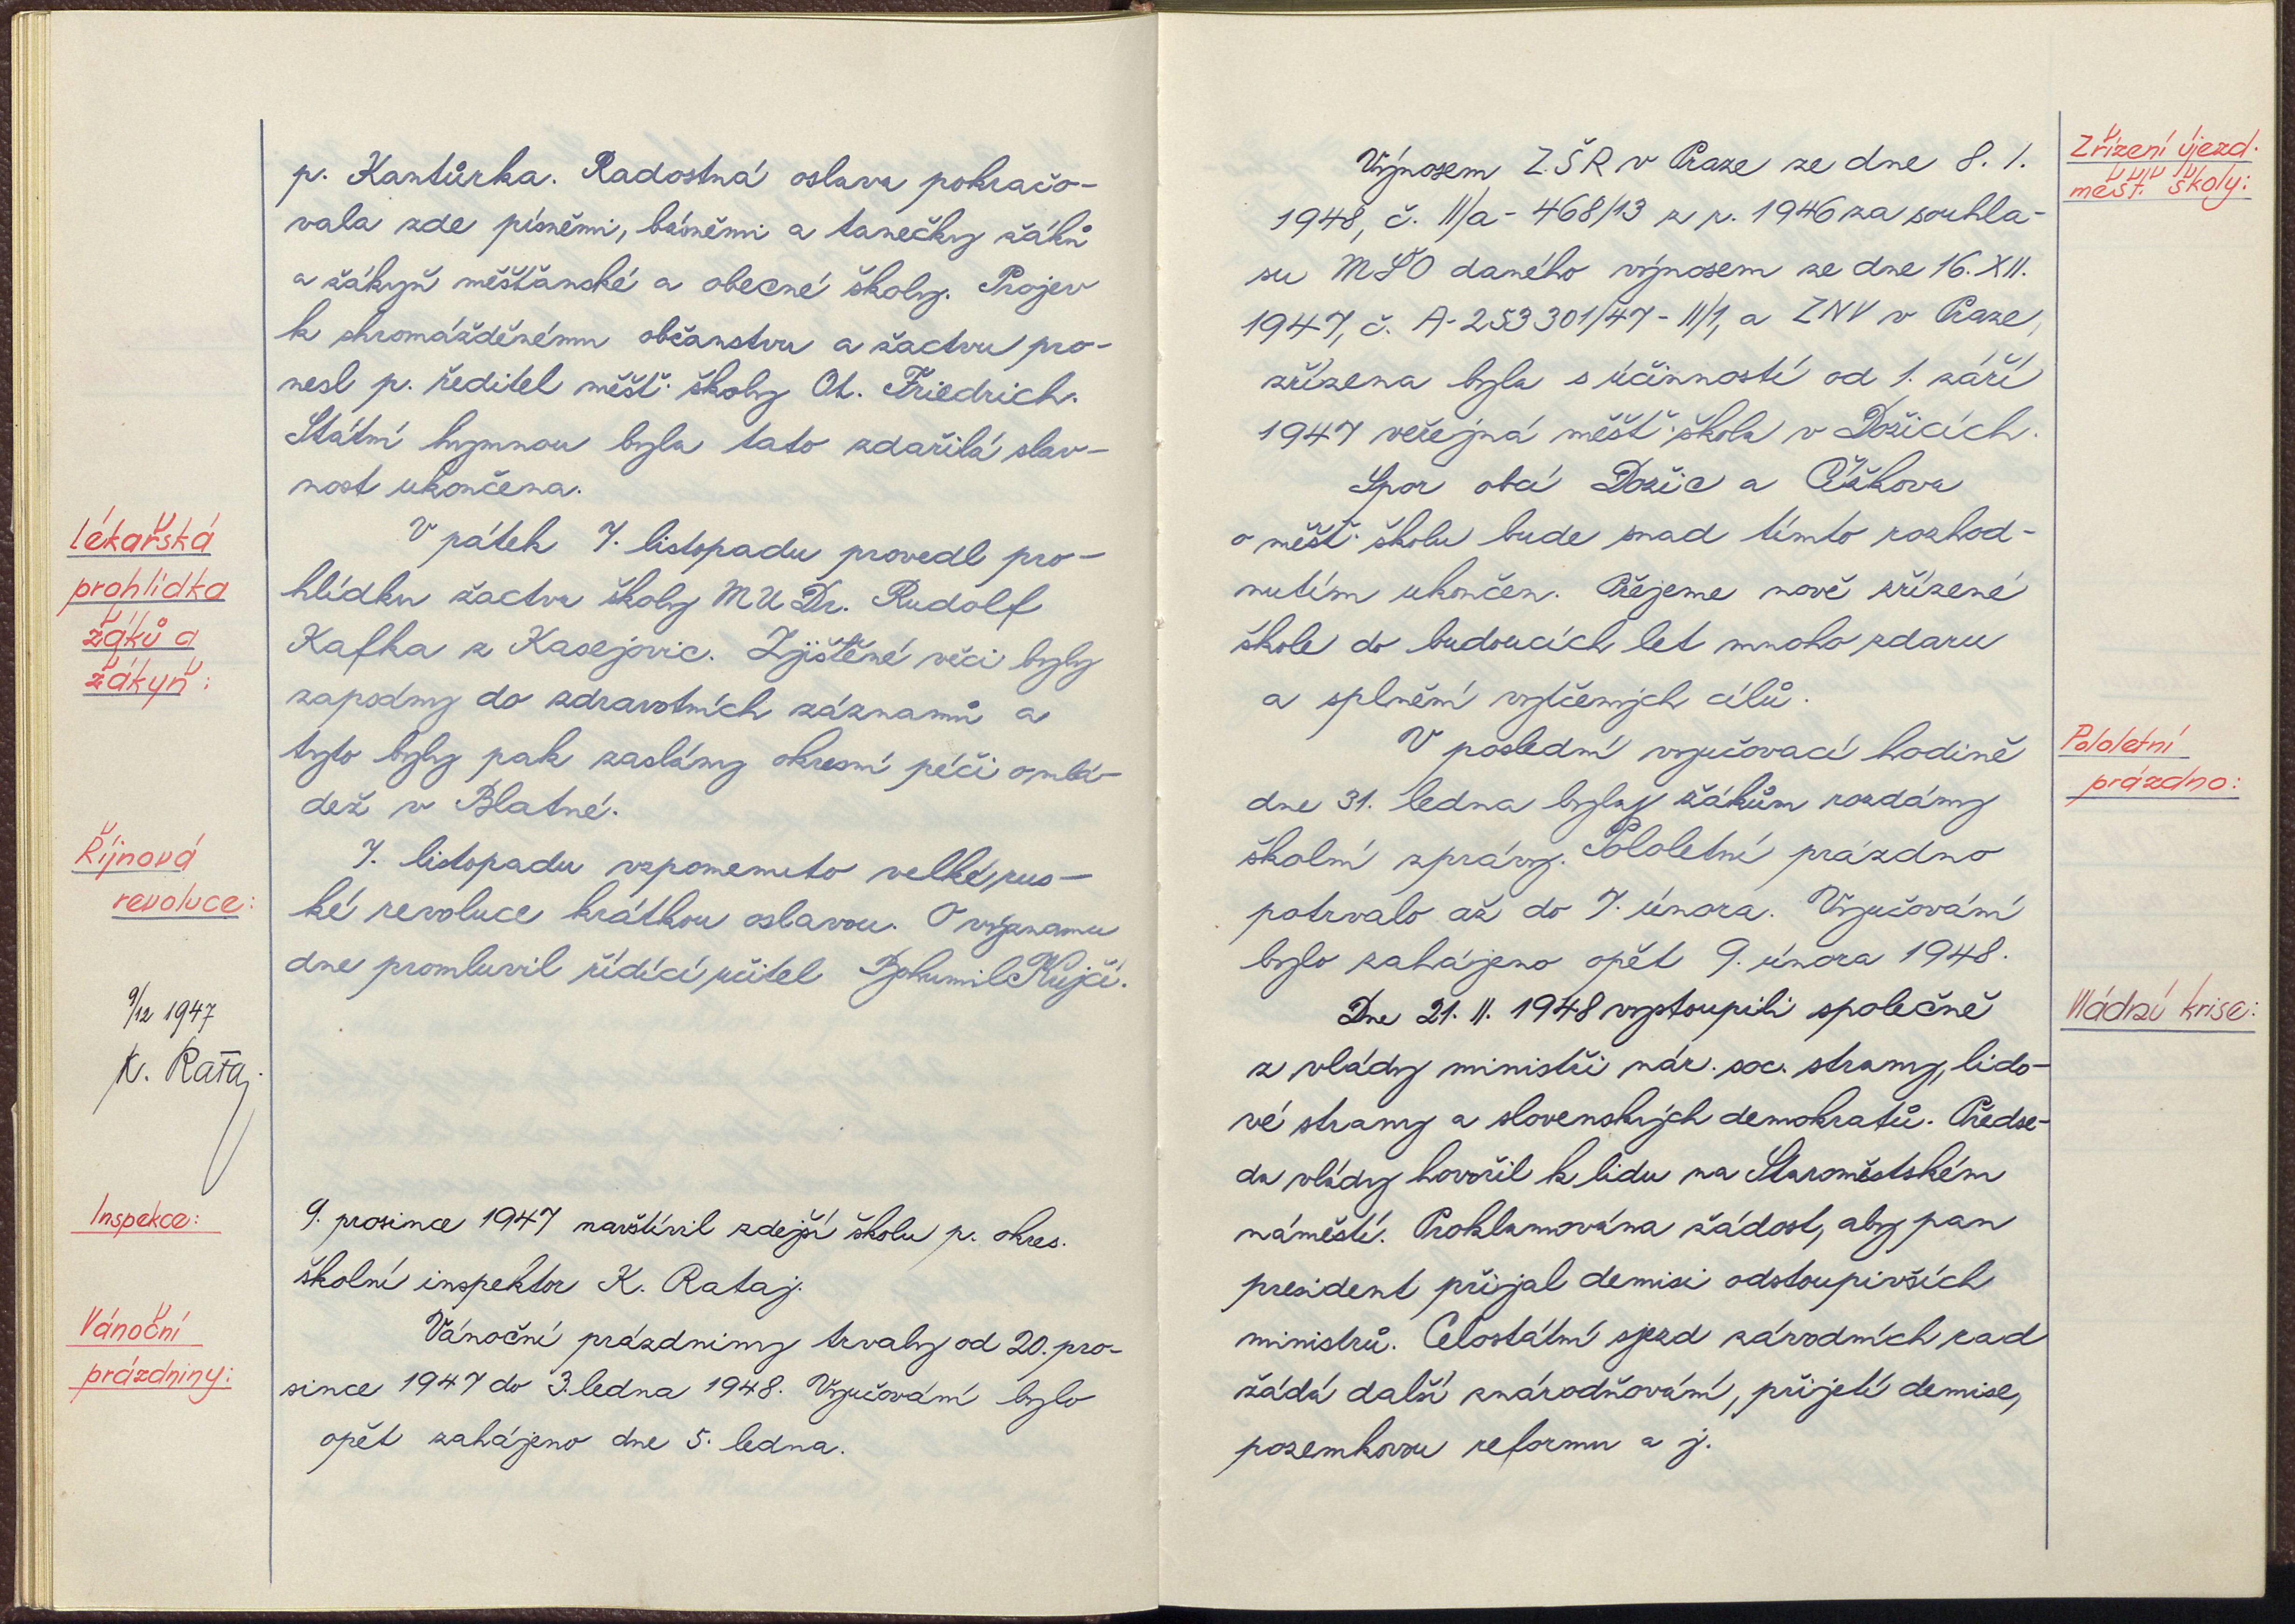 p. Kantůrka. Radostná oslava pokračo-
vala zde písněmi, básněmi a tanečky žáků
a žákyň měšťanské a obecné školy. Projev
k shromážděnému občanstvu a žactvu pro-
nesl p. ředitel měšť. školy Ot. Friedrich.
Státní hymnou byla tato zdařilá slav-
nost ukončena.
lékařská
prohlídka
žáků a
žákyň:
V pátek 7. listopadu provedl pro-
hlídku žactva školy MUDr. Rudolf
Kafka z Kasejovic. Zjištěné věci byly
zapodny do zdravotních záznamů a
tyto byly pak zaslány okresní péči o mlá-
dež v Blatné.
Říjnová
revoluce:
7. listopadu vzpomenuto velké rus-
ké revoluce krátkou oslavou. O významu
dne promluvil řídící učitel Bohumil Kujčí.
9/12 1947
K. Rataj
Inspekce:
9. prosince 1947 navštívil zdejší školu p. okres.
školní inspektor K. Rataj.
Vánoční
prázdniny:
Vánoční prázdniny trvaly od 20. pro-
since 1947 do 3. ledna 1948. Vyučování bylo
opět zahájeno dne 5. ledna.
Zřízení újezd.
měšť. školy:
Výnosem ZŠR v Praze ze dne 8. 1.
1948, č. II/a - 468/13 z r. 1946 za souhla-
su MŠO daného výnosem ze dne 16. XII.
1947, č. A-253301/47 - II/1, a ZNV v Praze,
zřízena byla s účinností od 1. září
1947 veřejná měšť. škola v Dožicích.
Spor obcí Dožic a Čížkova
o měšť. školu bude snad tímto rozhod-
nutím ukončen. Přejeme nově zřízené
škole do budoucích let mnoho zdaru
a splnění vytčených cílů.
Pololetní
prázdno:
V poslední vyučovací hodině
dne 31. ledna byly žákům rozdány
školní zprávy. Pololetní prázdno
potrvalo až do 7. února. Vyučování
bylo zahájeno opět 9. února 1948.
Vládní krise:
Dne 21. II. 1948 vystoupili společně
z vlády ministři nár. soc. strany, lido-
vé strany a slovenských demokratů. Předse-
da vlády hovořil k lidu na Staroměstském
náměstí. Proklamována žádost, aby pan
president přijal demisi odstoupivších
ministrů. Celostátní sjezd závodních rad
žádá další znárodňování, přijetí demise,
pozemkovou reformu a j.